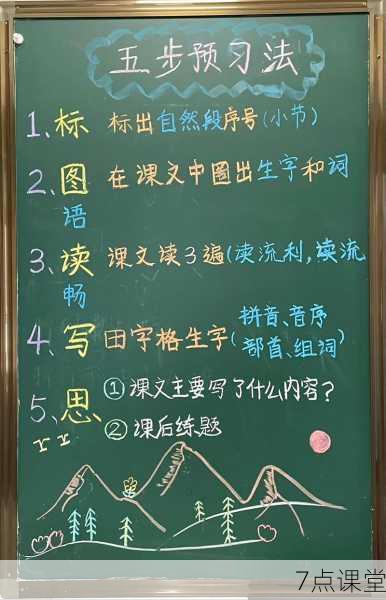 五步预习法
1、标 标出自然段序号(小节)
2、图 在课文中圈出生字和词
语
3、读 课文读3遍(读流利,读流
畅
4、写 田字格生字(拼音、音序
部首、组词)
5、思 ①课文主要写了什么内容?
②课后练题
7点课堂